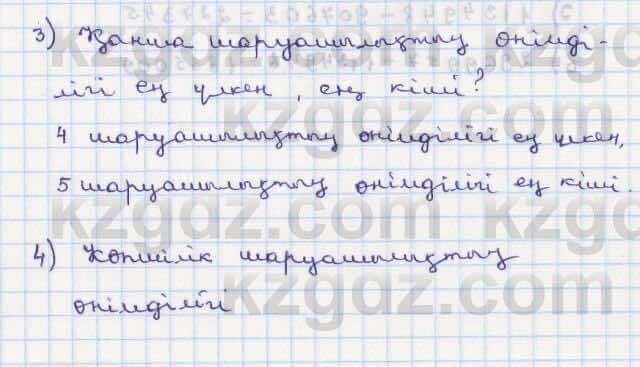 3) Қанша шаруашылықтың өнімді-
лігі ең үлкен, ең кіші?
4 шаруашылықтың өнімділігі ең үлкен,
5 шаруашылықтың өнімділігі ең кіші.
4) Көпшілік шаруашылықтың
өнімділігі
kzgdz.com